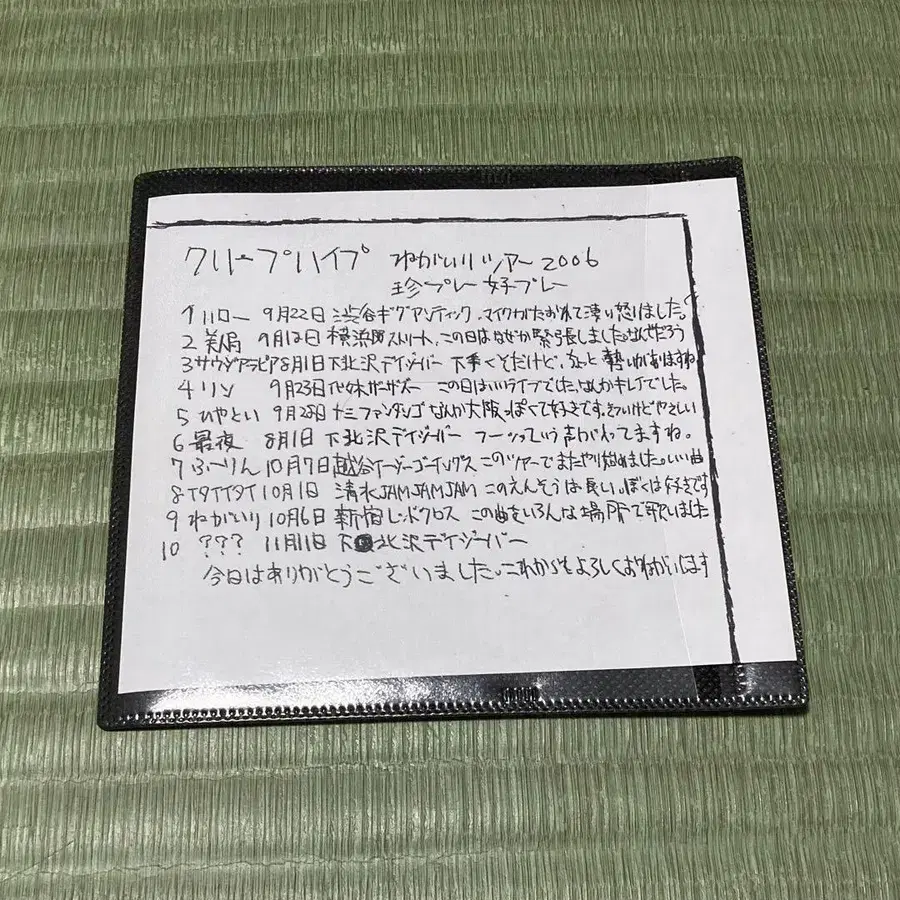 クリープハイプ ねがいりツアー2006
珍プレー好プレー
1 ハロー 9月22日 渋谷ギグアンティック、マイクがたおれて凄い怒りました。
2 美人局 9月12日 横浜BBストリート、この日はなぜか緊張しました。なぜだろう
3 サウジアラビア 8月1日 下北沢デイジーバー 下手くそだけど、勢いがありますね
4 リン 9月23日 代々木ザーザズー この日はいいライブでした。なんかキレイでした。
5 ひやとい 9月28日 十三ファンダンゴ なんか大阪っぽくて好きです。きついけどやさしい
6 最夜 8月1日 下北沢デイジーバー フーッっていう声が入ってますね。
7 ふーりん 10月7日 越谷イージーゴーイングス このツアーでまたやり始めました。いい曲
8 イタイイタイ 10月1日 清水JAMJAMJAM このえんそうは長い。ぼくは好きです
9 ねがいり 10月6日 新宿レッドクロス この曲をいろんな場所で歌いました
10 ??? 11月11日 下北沢デイジーバー
今日はありがとうございました。これからもよろしくおねがいします